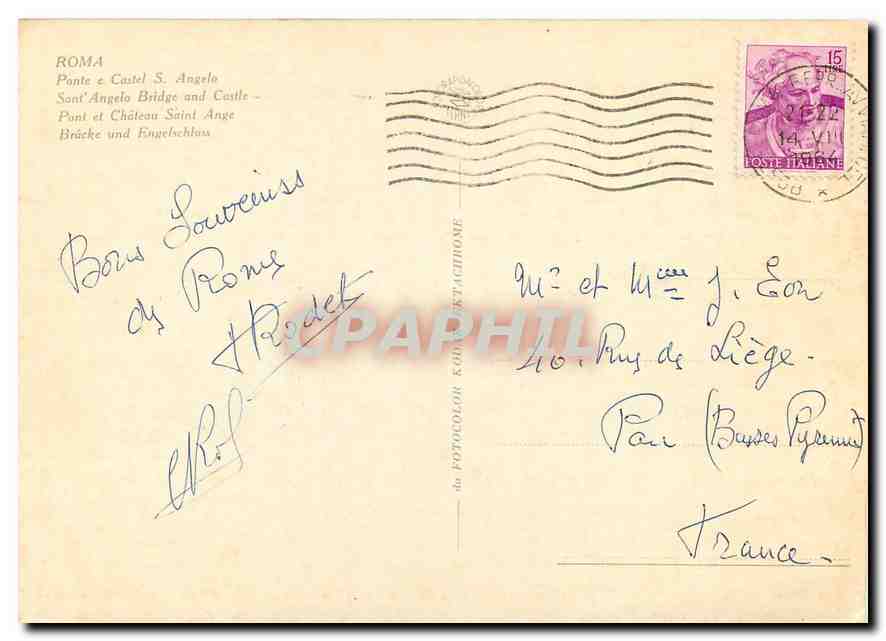 ROMA
Ponte e Castel S. Angelo
Sant'Angelo Bridge and Castle
Pont et Château Saint Ange
Brücke und Engelschloss
15
LIRE
21-22
14·VII
1964
POSTE ITALIANE
Bons Souvenirs
de Rome
Rodet
da FOTOCOLOR KODAK EKTACHROME
CPAPHIL
Mr et Mme J. Eon
40. Rue de Liège.
Pau (Basses Pyrénées)
France.